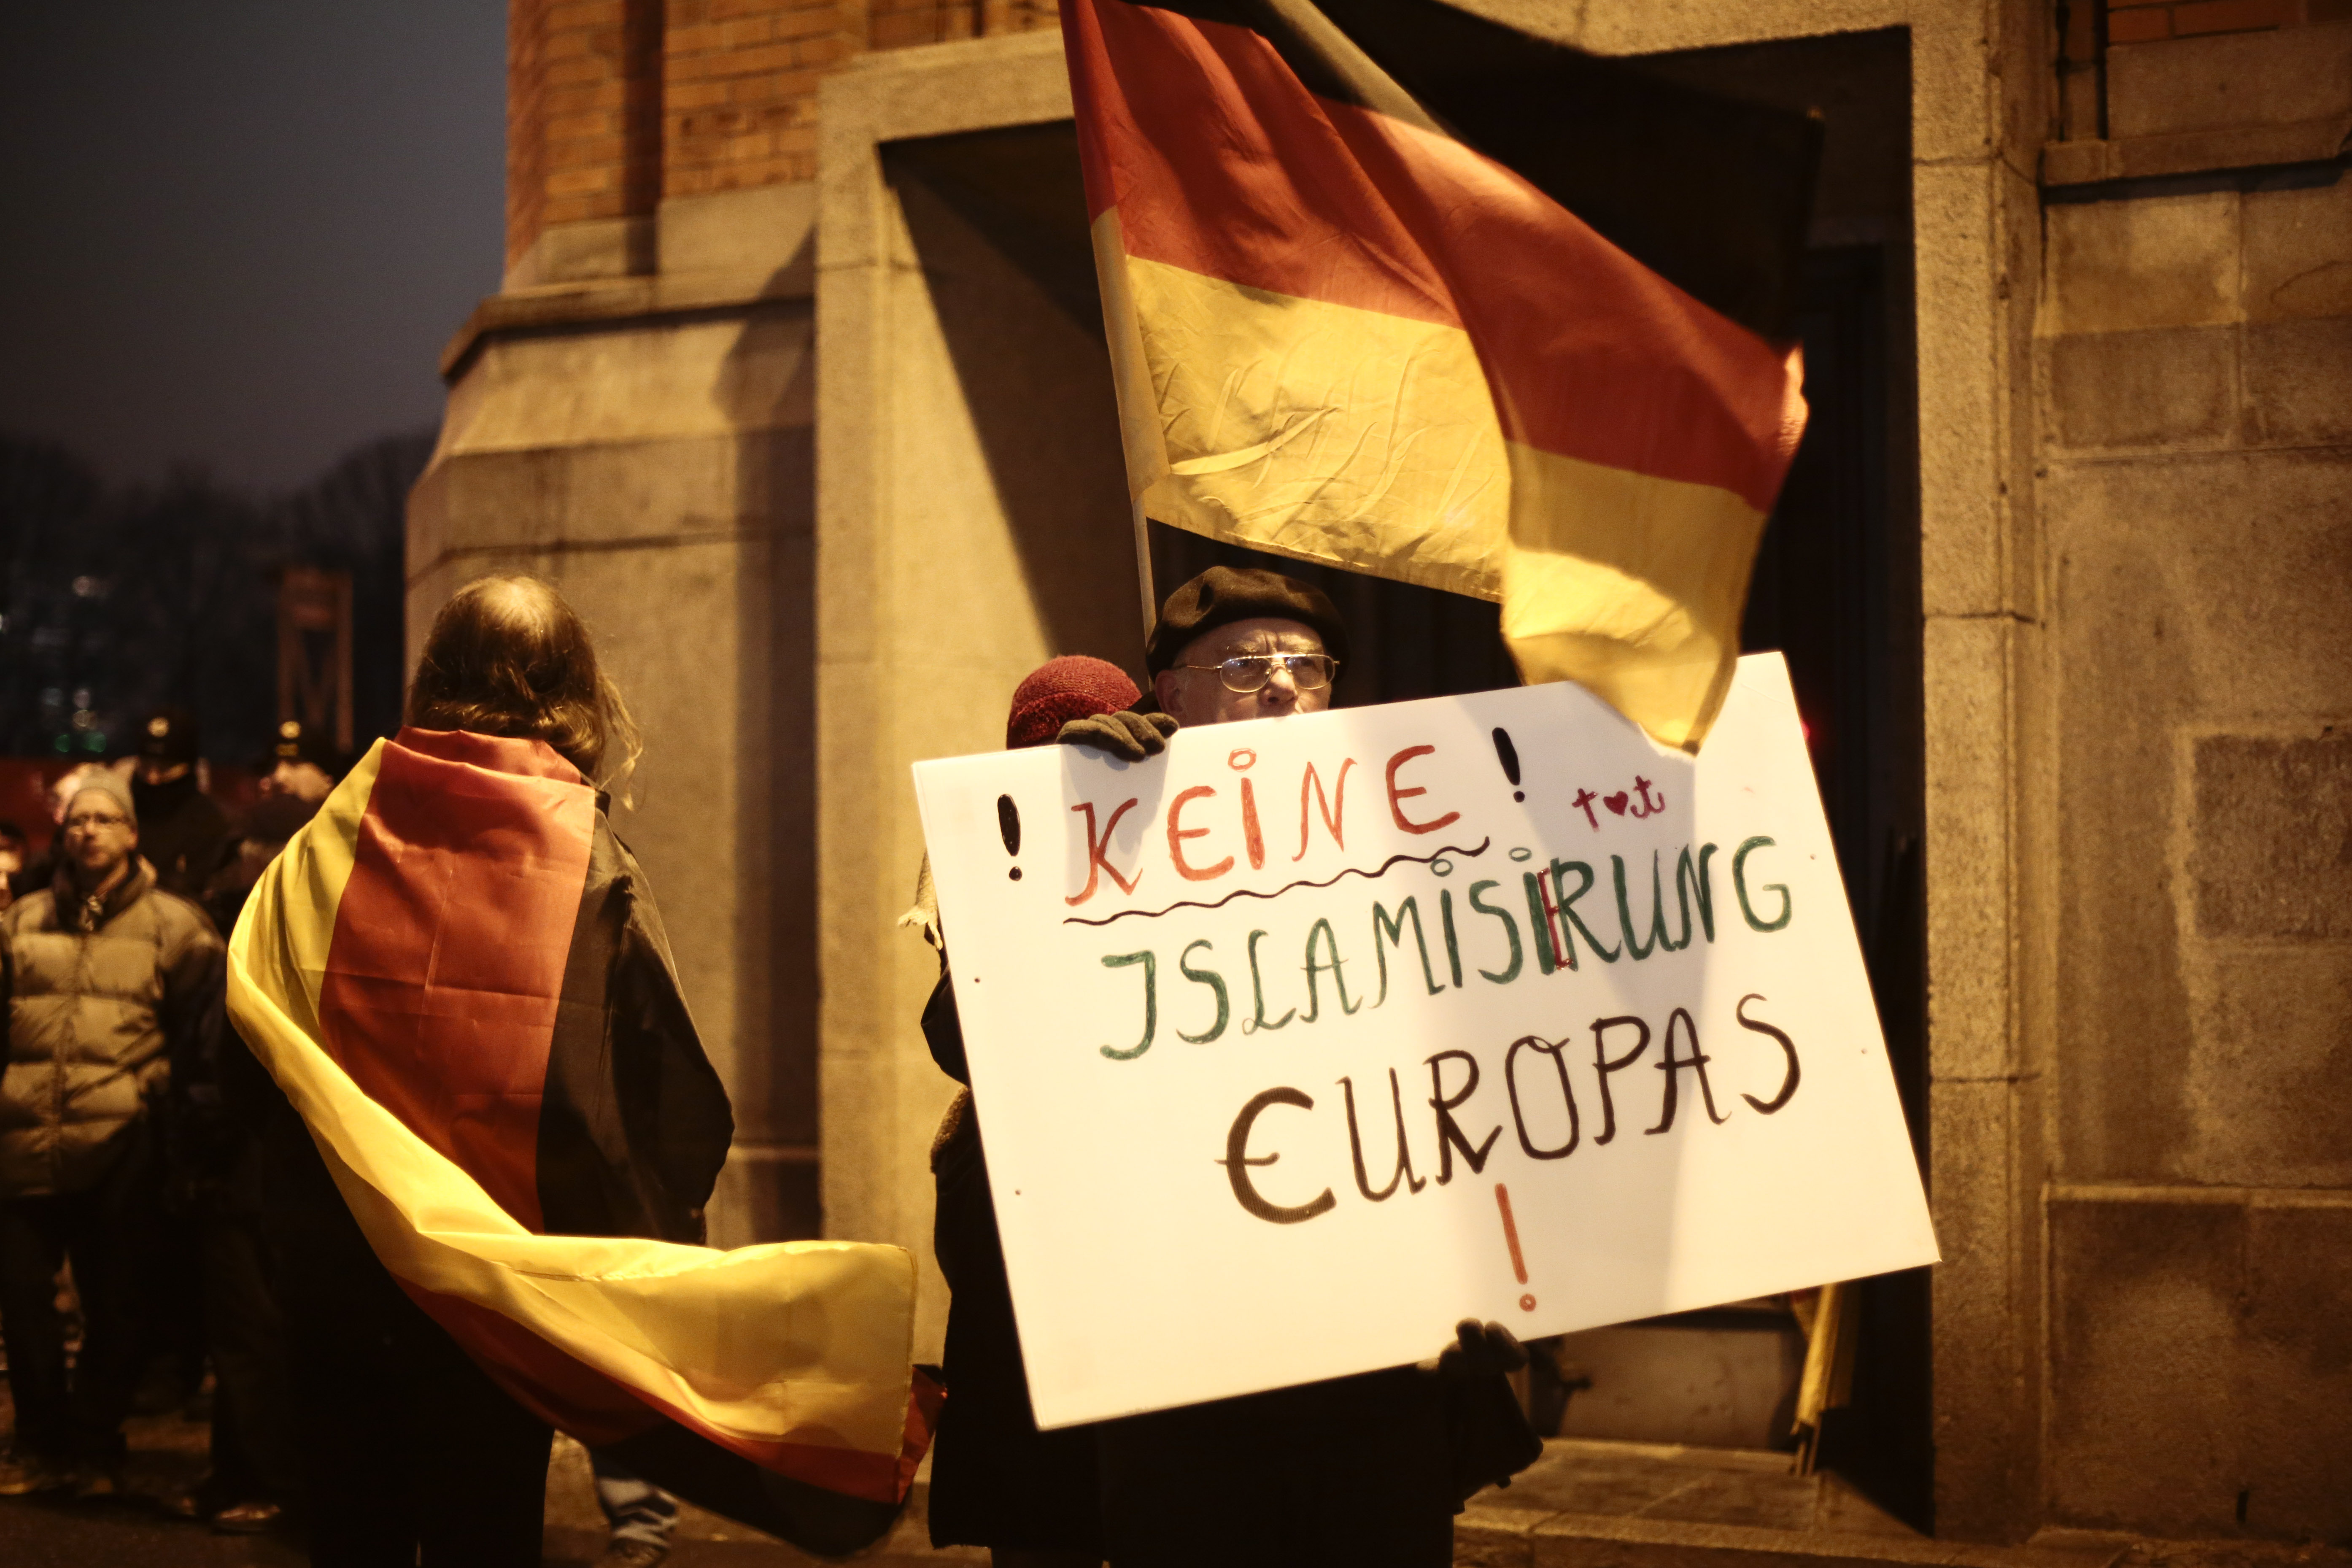 ! KEINE !
ISLAMISIERUNG
€UROPAS
!